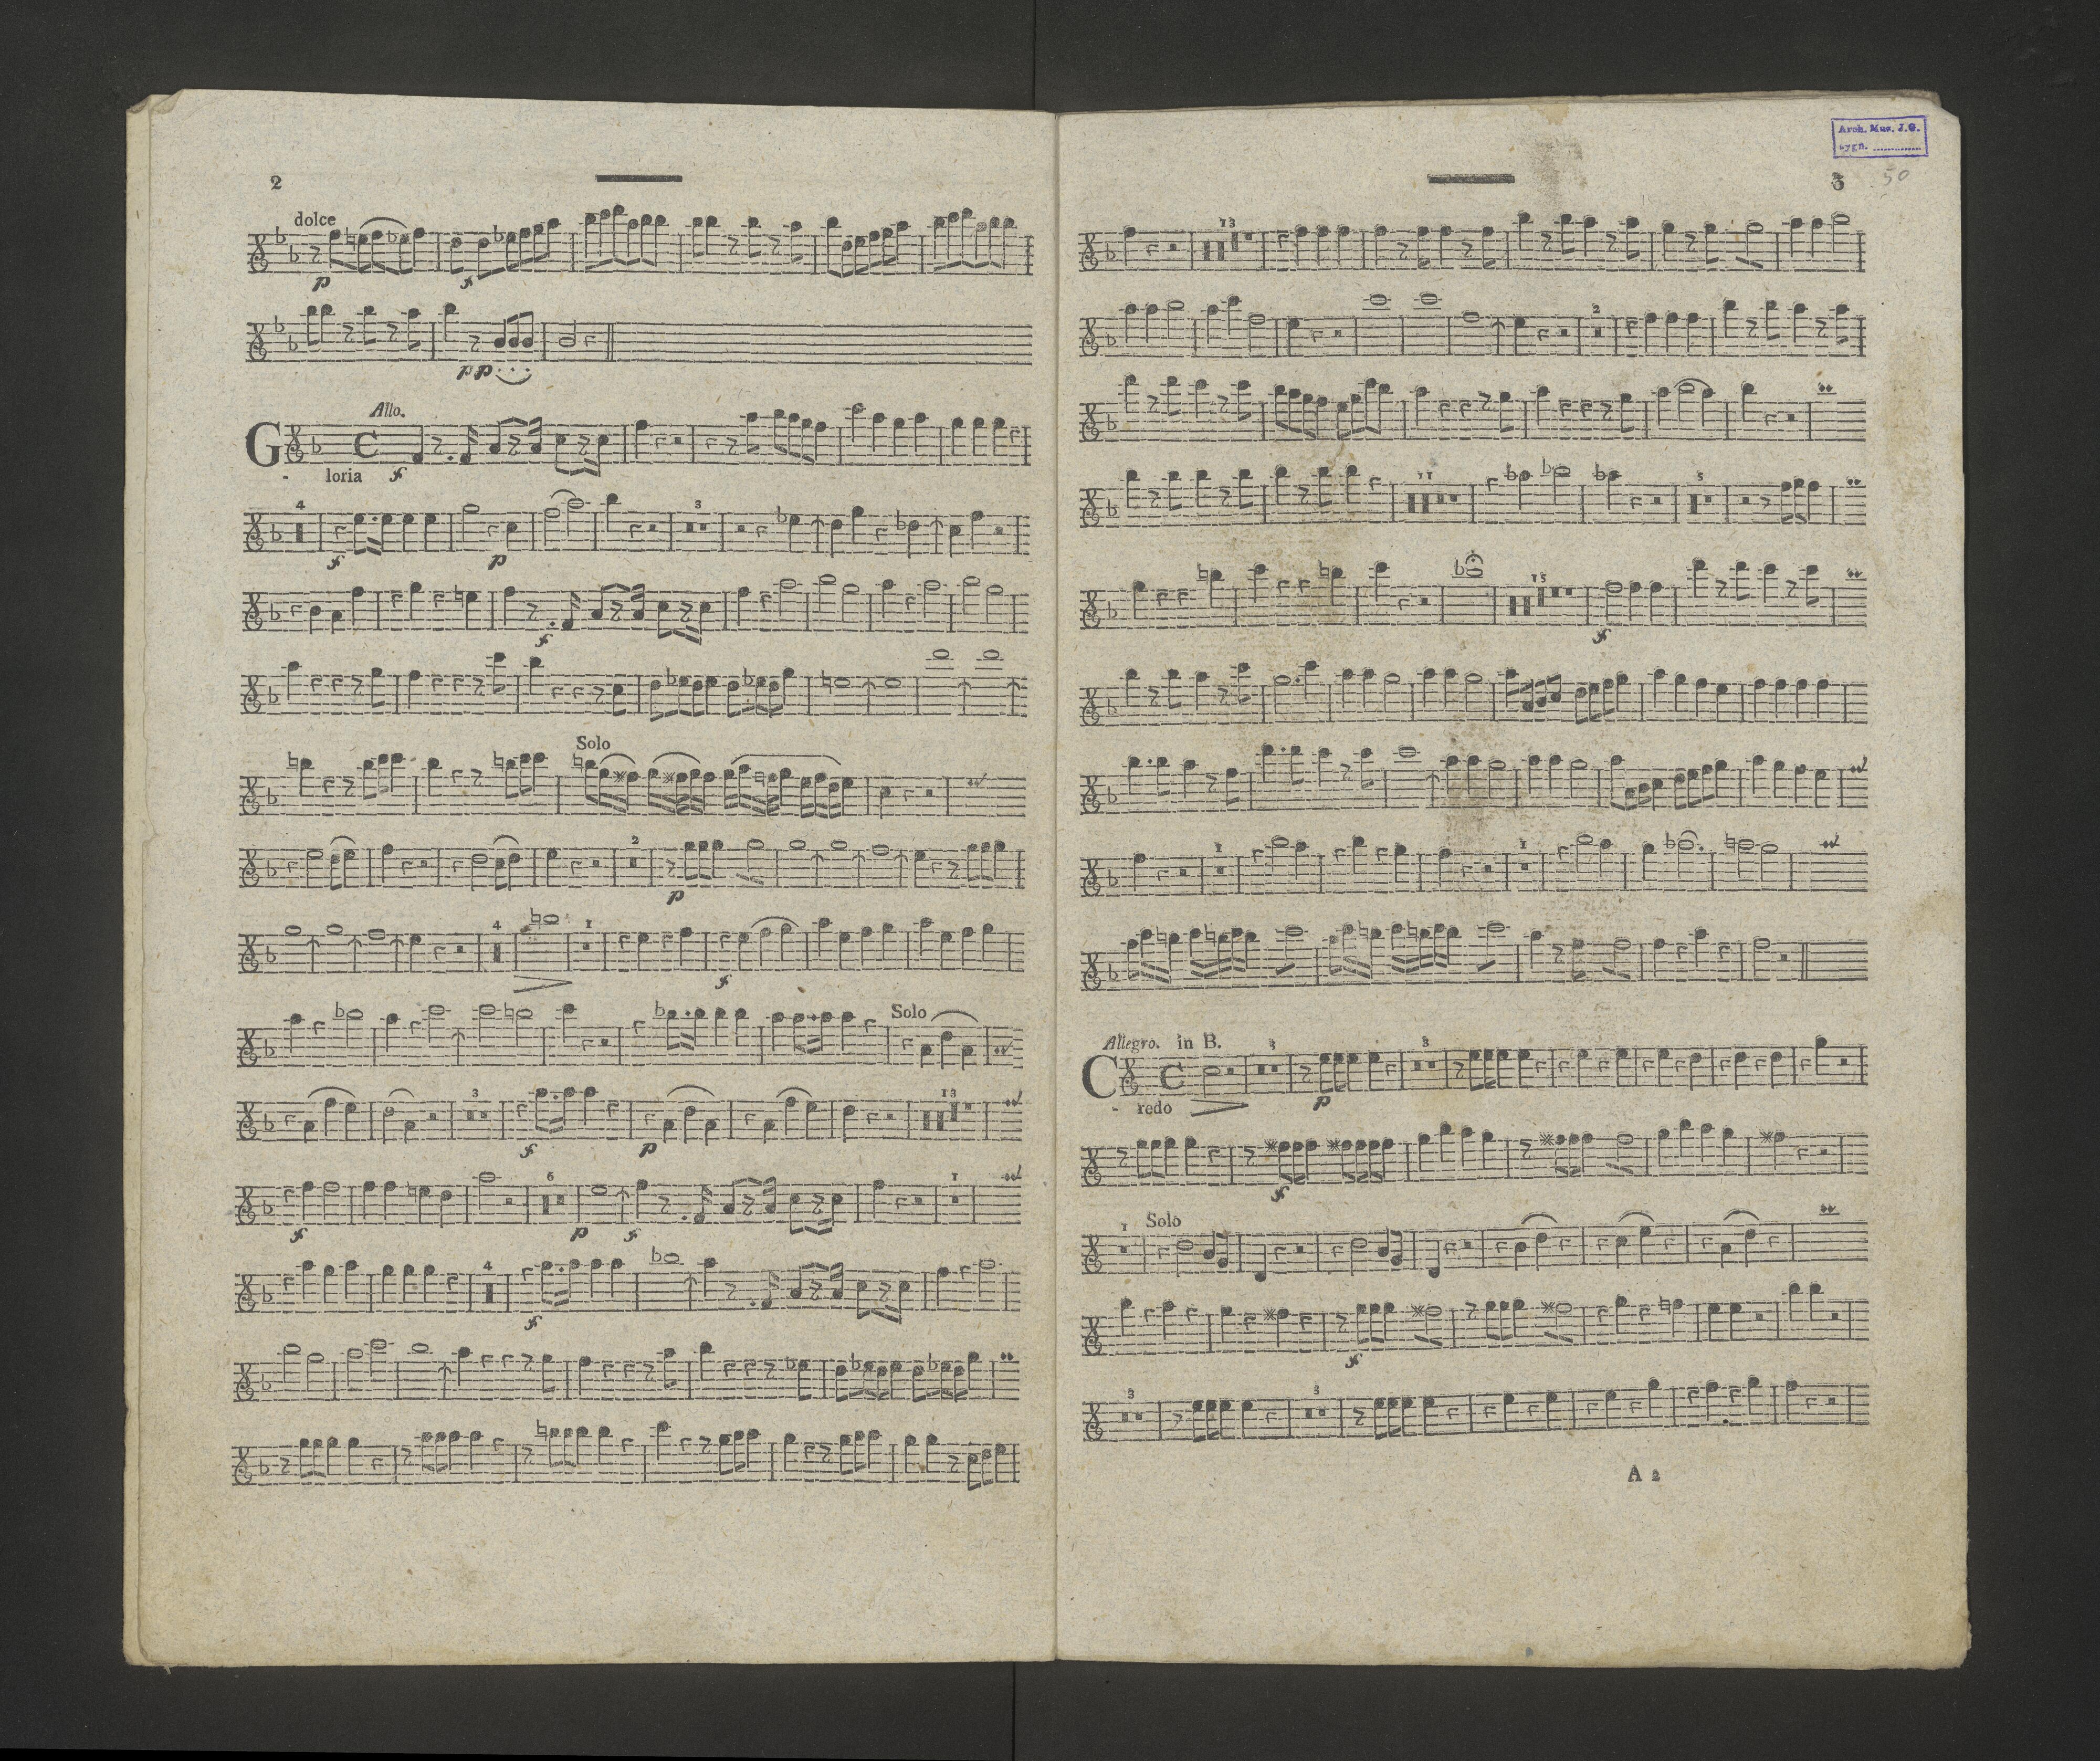 2
dolce
p f
pp
Allo.
G
- loria f
4 3
f p
f
Solo
2
p
4 1
f
Solo
3 13
f p
6 1
f p f
4
f
Arch. Mus. J. G.
sygn. ..............
3 50
13
2
11 5
15
f
1 1
Allegro. in B.
C 3 3
- redo p
f
1 Solo
f
3 3
A 2